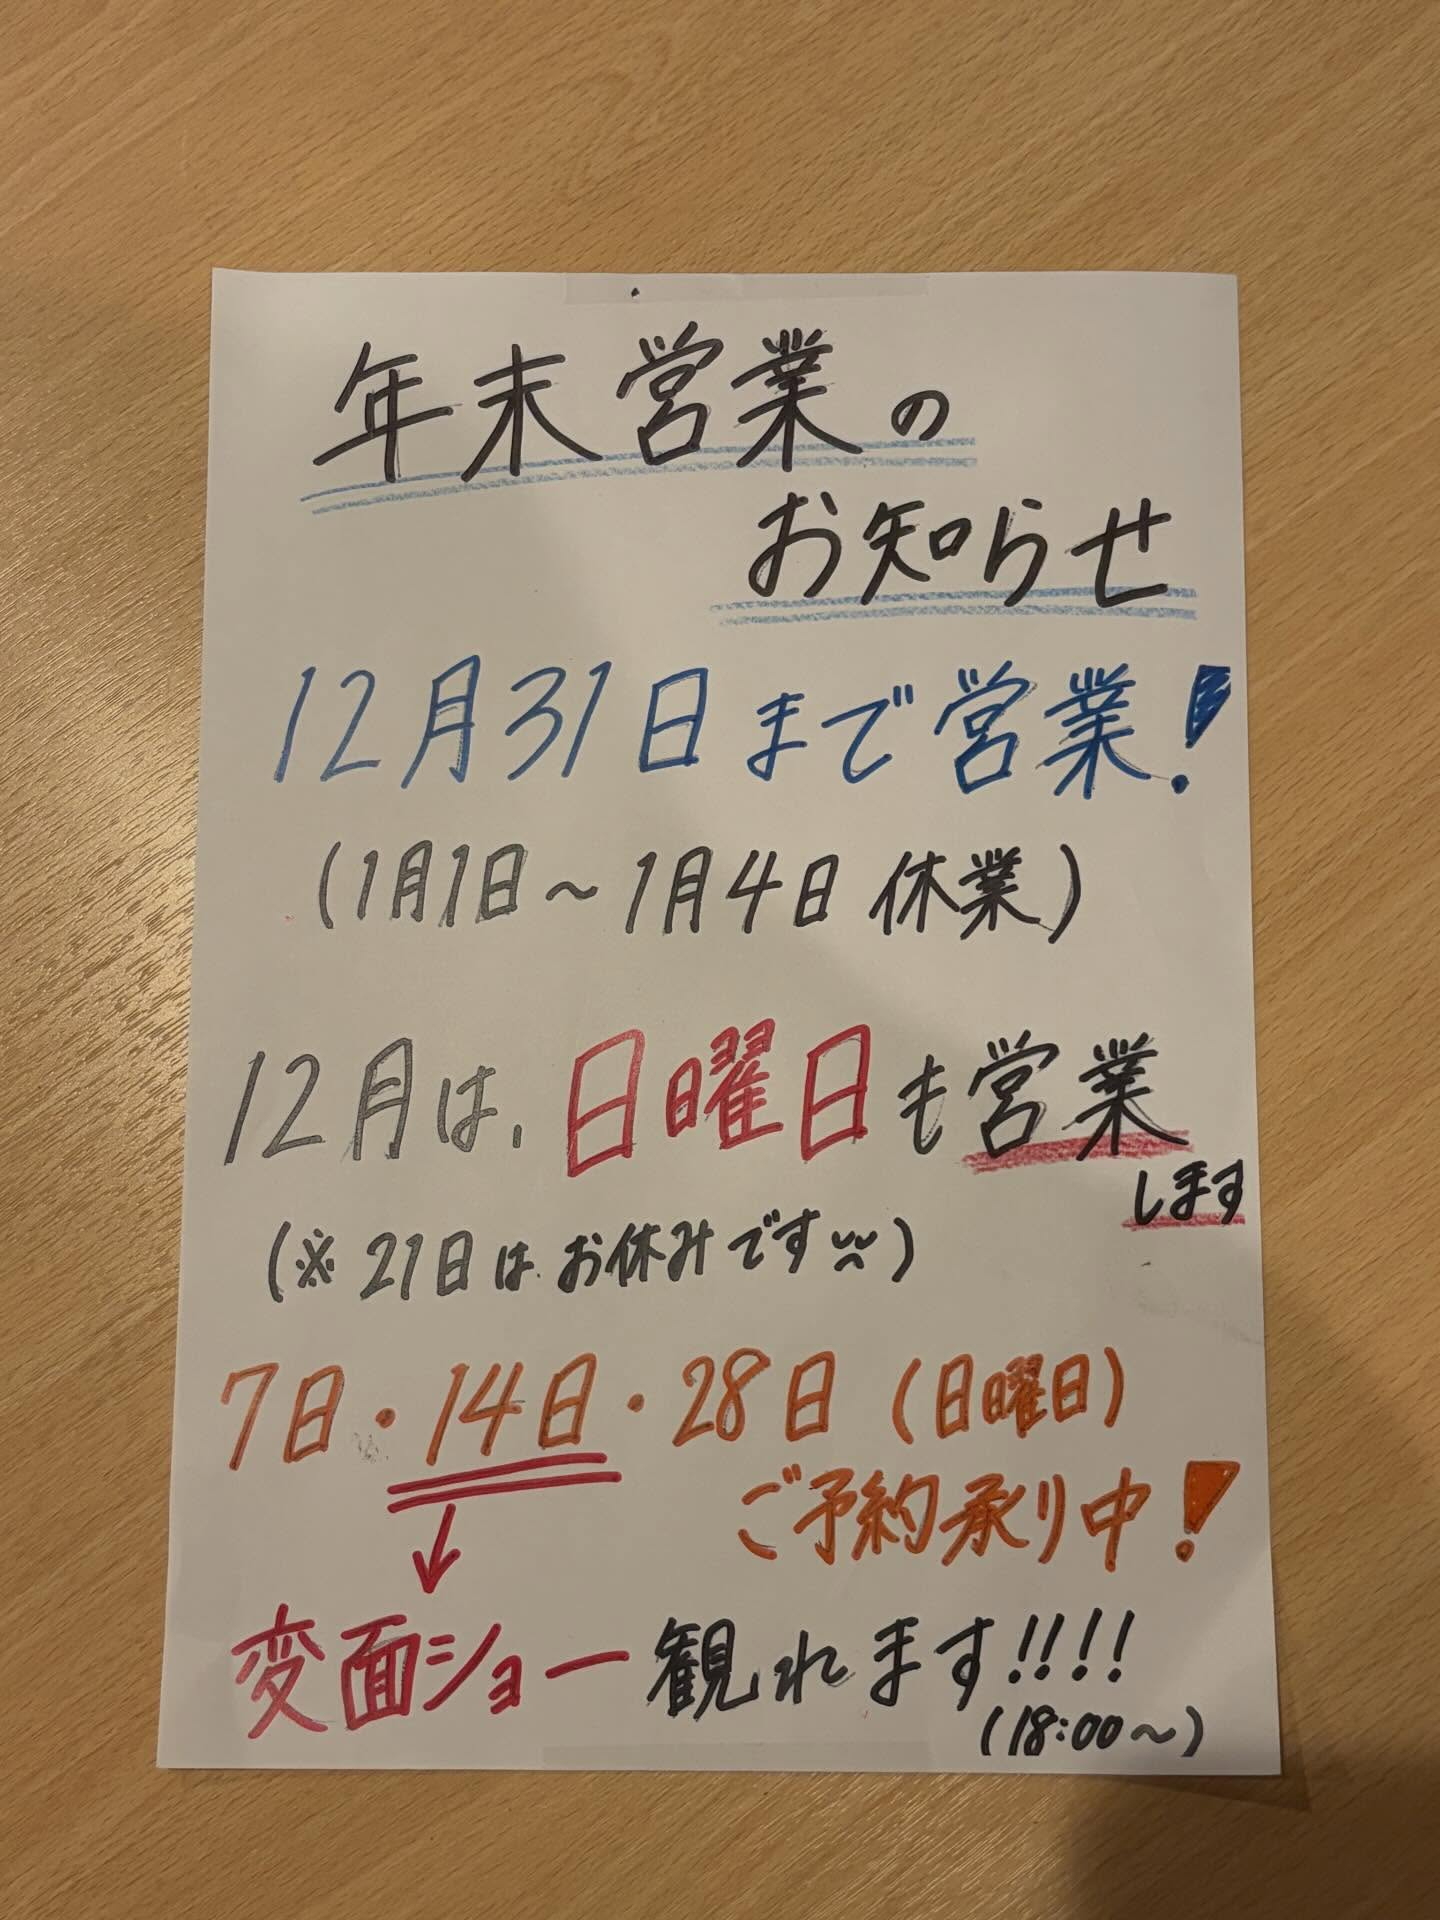 年末営業の
お知らせ
12月31日まで営業!
(1月1日～1月4日 休業)
12月は、日曜日も営業
します
(※21日は、お休みです)
7日・14日・28日(日曜日)
ご予約承り中!
変面ショー観れます!!!!
(18:00～)